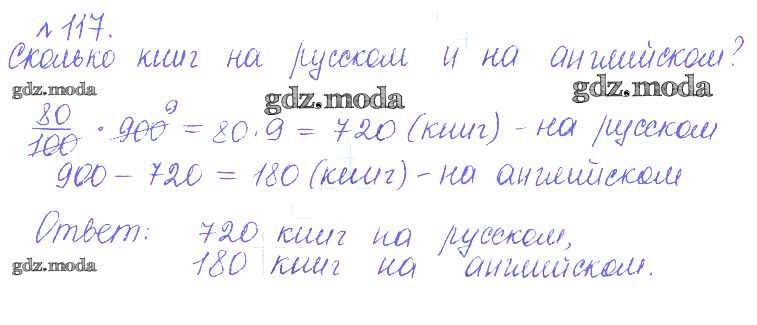 № 117.
Сколько книг на русском и на английском?
gdz.moda gdz.moda gdz.moda
80/100 · 900 9 = 80 · 9 = 720 (книг) - на русском
900 - 720 = 180 (книг) - на английском
Ответ: 720 книг на русском,
gdz.moda 180 книг на английском.